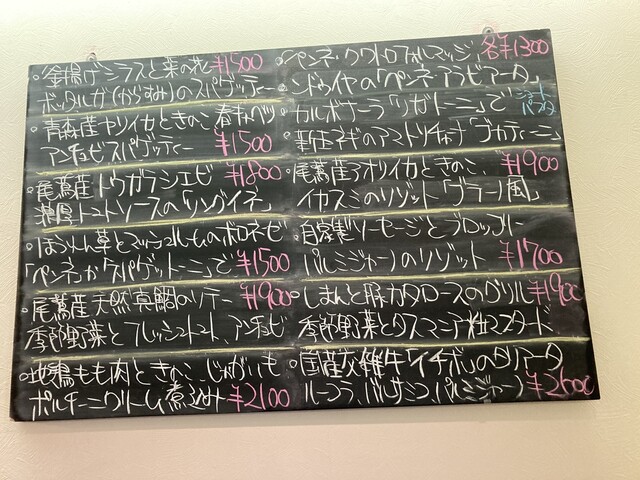 ・釜揚げシラスと菜の花 ¥1500
ボッタルガ(からすみ)のスパゲッティー
・青森産ヤリイカときのこ、春キャベツ
アンチョビスパゲッティー ¥1500
・尾鷲産トウガラシエビ ¥1800
濃厚トマトソースの「リングイネ」
・ほうれん草とマッシュルームのボロネーゼ
「ペンネ」か「スパゲットーニ」で ¥1500
・尾鷲産天然真鯛のソテー ¥1900
季節野菜とフレッシュトマト、アンチョビ
・地鶏もも肉ときのこ、じゃがいも
ポルチーニクリーム煮込み ¥2100
・「ペンネ」クワトロフォルマッジ 各¥1300
・ンドゥイヤの「ペンネアラビアータ」
・カルボナーラ「リガトーニ」で ショートパスタ
・新玉ネギのアマトリチャーナ「ブカティーニ」
・尾鷲産アオリイカときのこ、¥1900
イカスミのリゾット「ブラーノ風」
・自家製ソーセージとブロッコリー
パルミジャーノのリゾット ¥1700
・しまんと豚カタロースのグリル ¥1900
季節野菜とタスマニア粒マスタード
・国産 牛「イチボ」のタリアータ
ルーコラ、バルサミコ、パルミジャーノ ¥2600